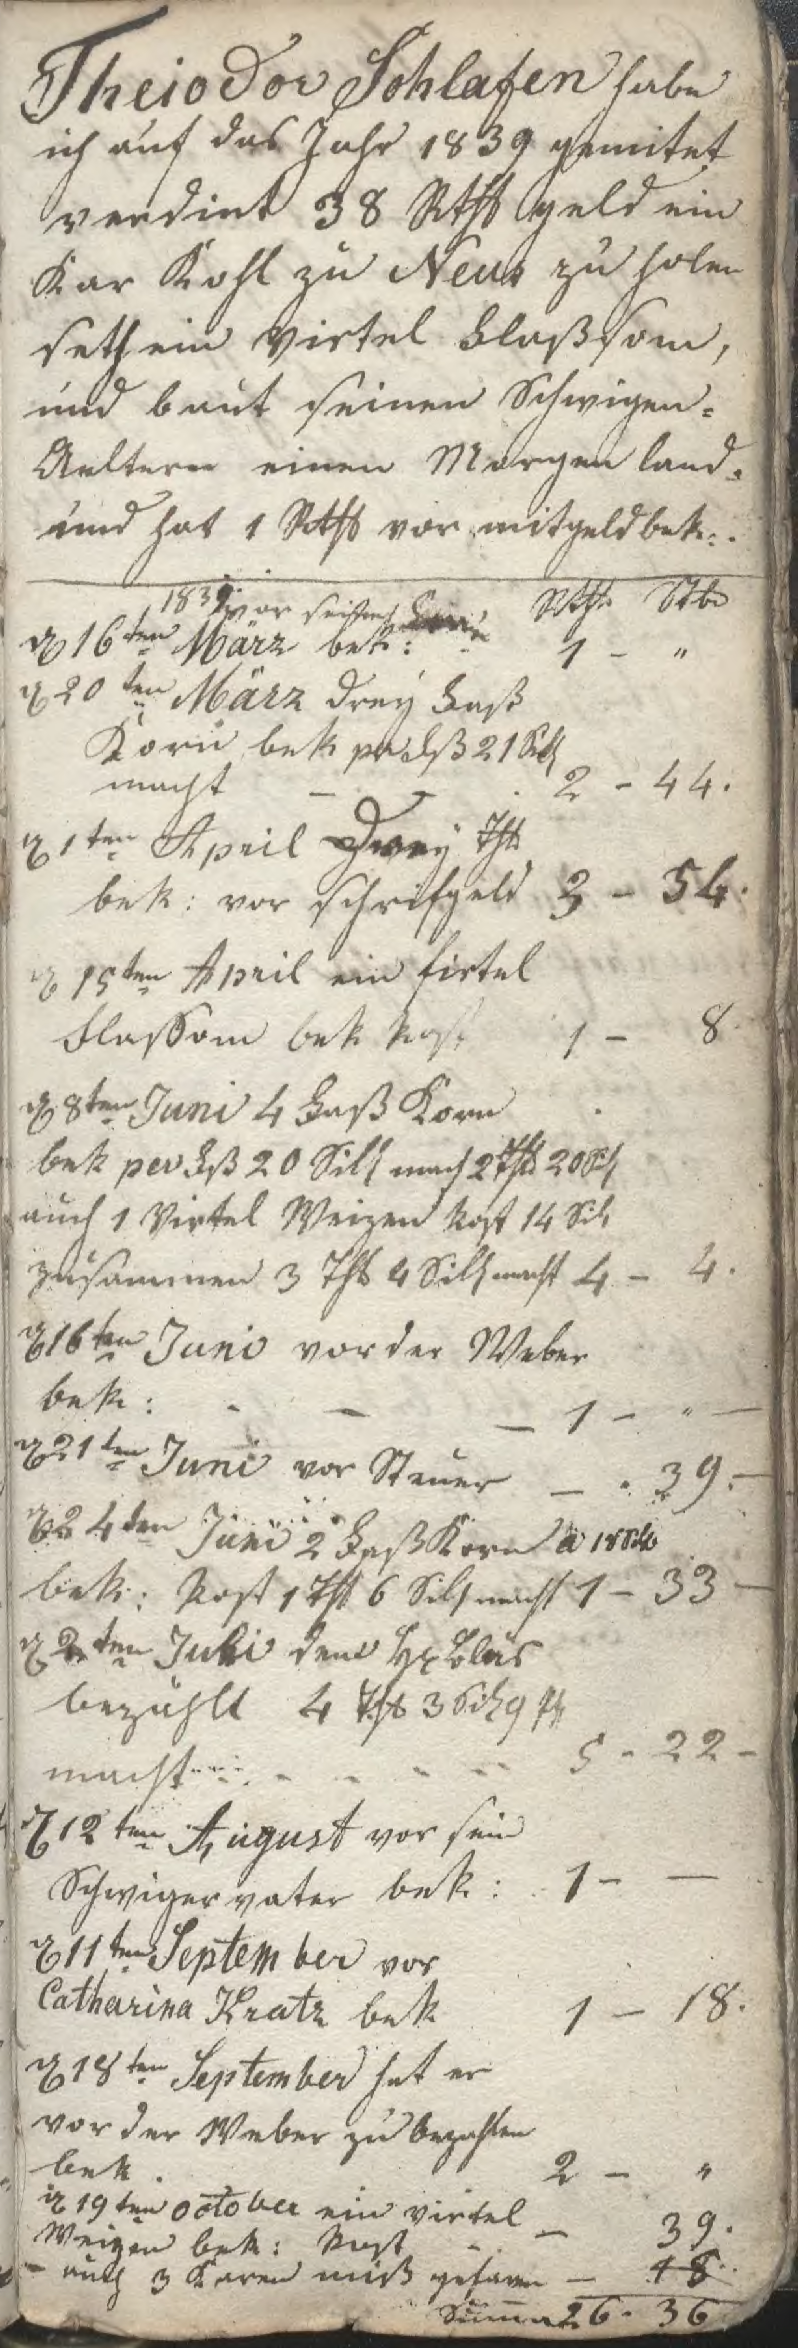 Theiodor Schlafen habe
ich auf das Jahr 1839 gemitet
verdint 38 Rthl geld ein
Kar Kohl zu Neus zu holen
seth ein virtel Flaßsom,
und baut seinen Schwigen-
Aeltern einen Morgen land.
und hat 1 Rthl vor mitgeld bek:.
1839 Rthl Stbr
d 16ten März bek: vor seine 1 - "
d 20ten März drey Faß
Korn bek per Fß 21 Silb
macht - 2 - 44.
d 1ten April Drey Thl
bek: vor schrifgeld 3 - 54.
d 15ten April ein firtel
Flassom bek kost 1 - 8
d 8ten Juni 4 Faß Korn
bek per Fß 20 Silb mach 2 Thl 20 Sil
auch 1 Virtel Weizen kost 14 Sil
zusammen 3 Thl 4 Silb macht 4 - 4.
d 16ten Juni vor der Weber
bek: - - - 1 - " -
d 21ten Juni vor Steuer - . 39. -
d 24ten Juni 2 Faß Korn a 18 Silb
bek: kost 1 Thl 6 Silb macht 1 - 33 -
d 2ten Juli dem
bezahlt 4 Thl 3 Silb 9 Pf
macht - - - 5 - 22 -
d 12ten August vor sein
Schwiger vater bek: 1 - -
d 11ten September vor
Catharina Kratz bek 1 - 18.
d 18ten September hat er
vor der Weber zu bezahlen
bek. 2 - "
d 19ten october ein virtel
Weizen bek: kost - 39.
- auch 3 Karen mist gefaren - 18.
Summa 26. 36